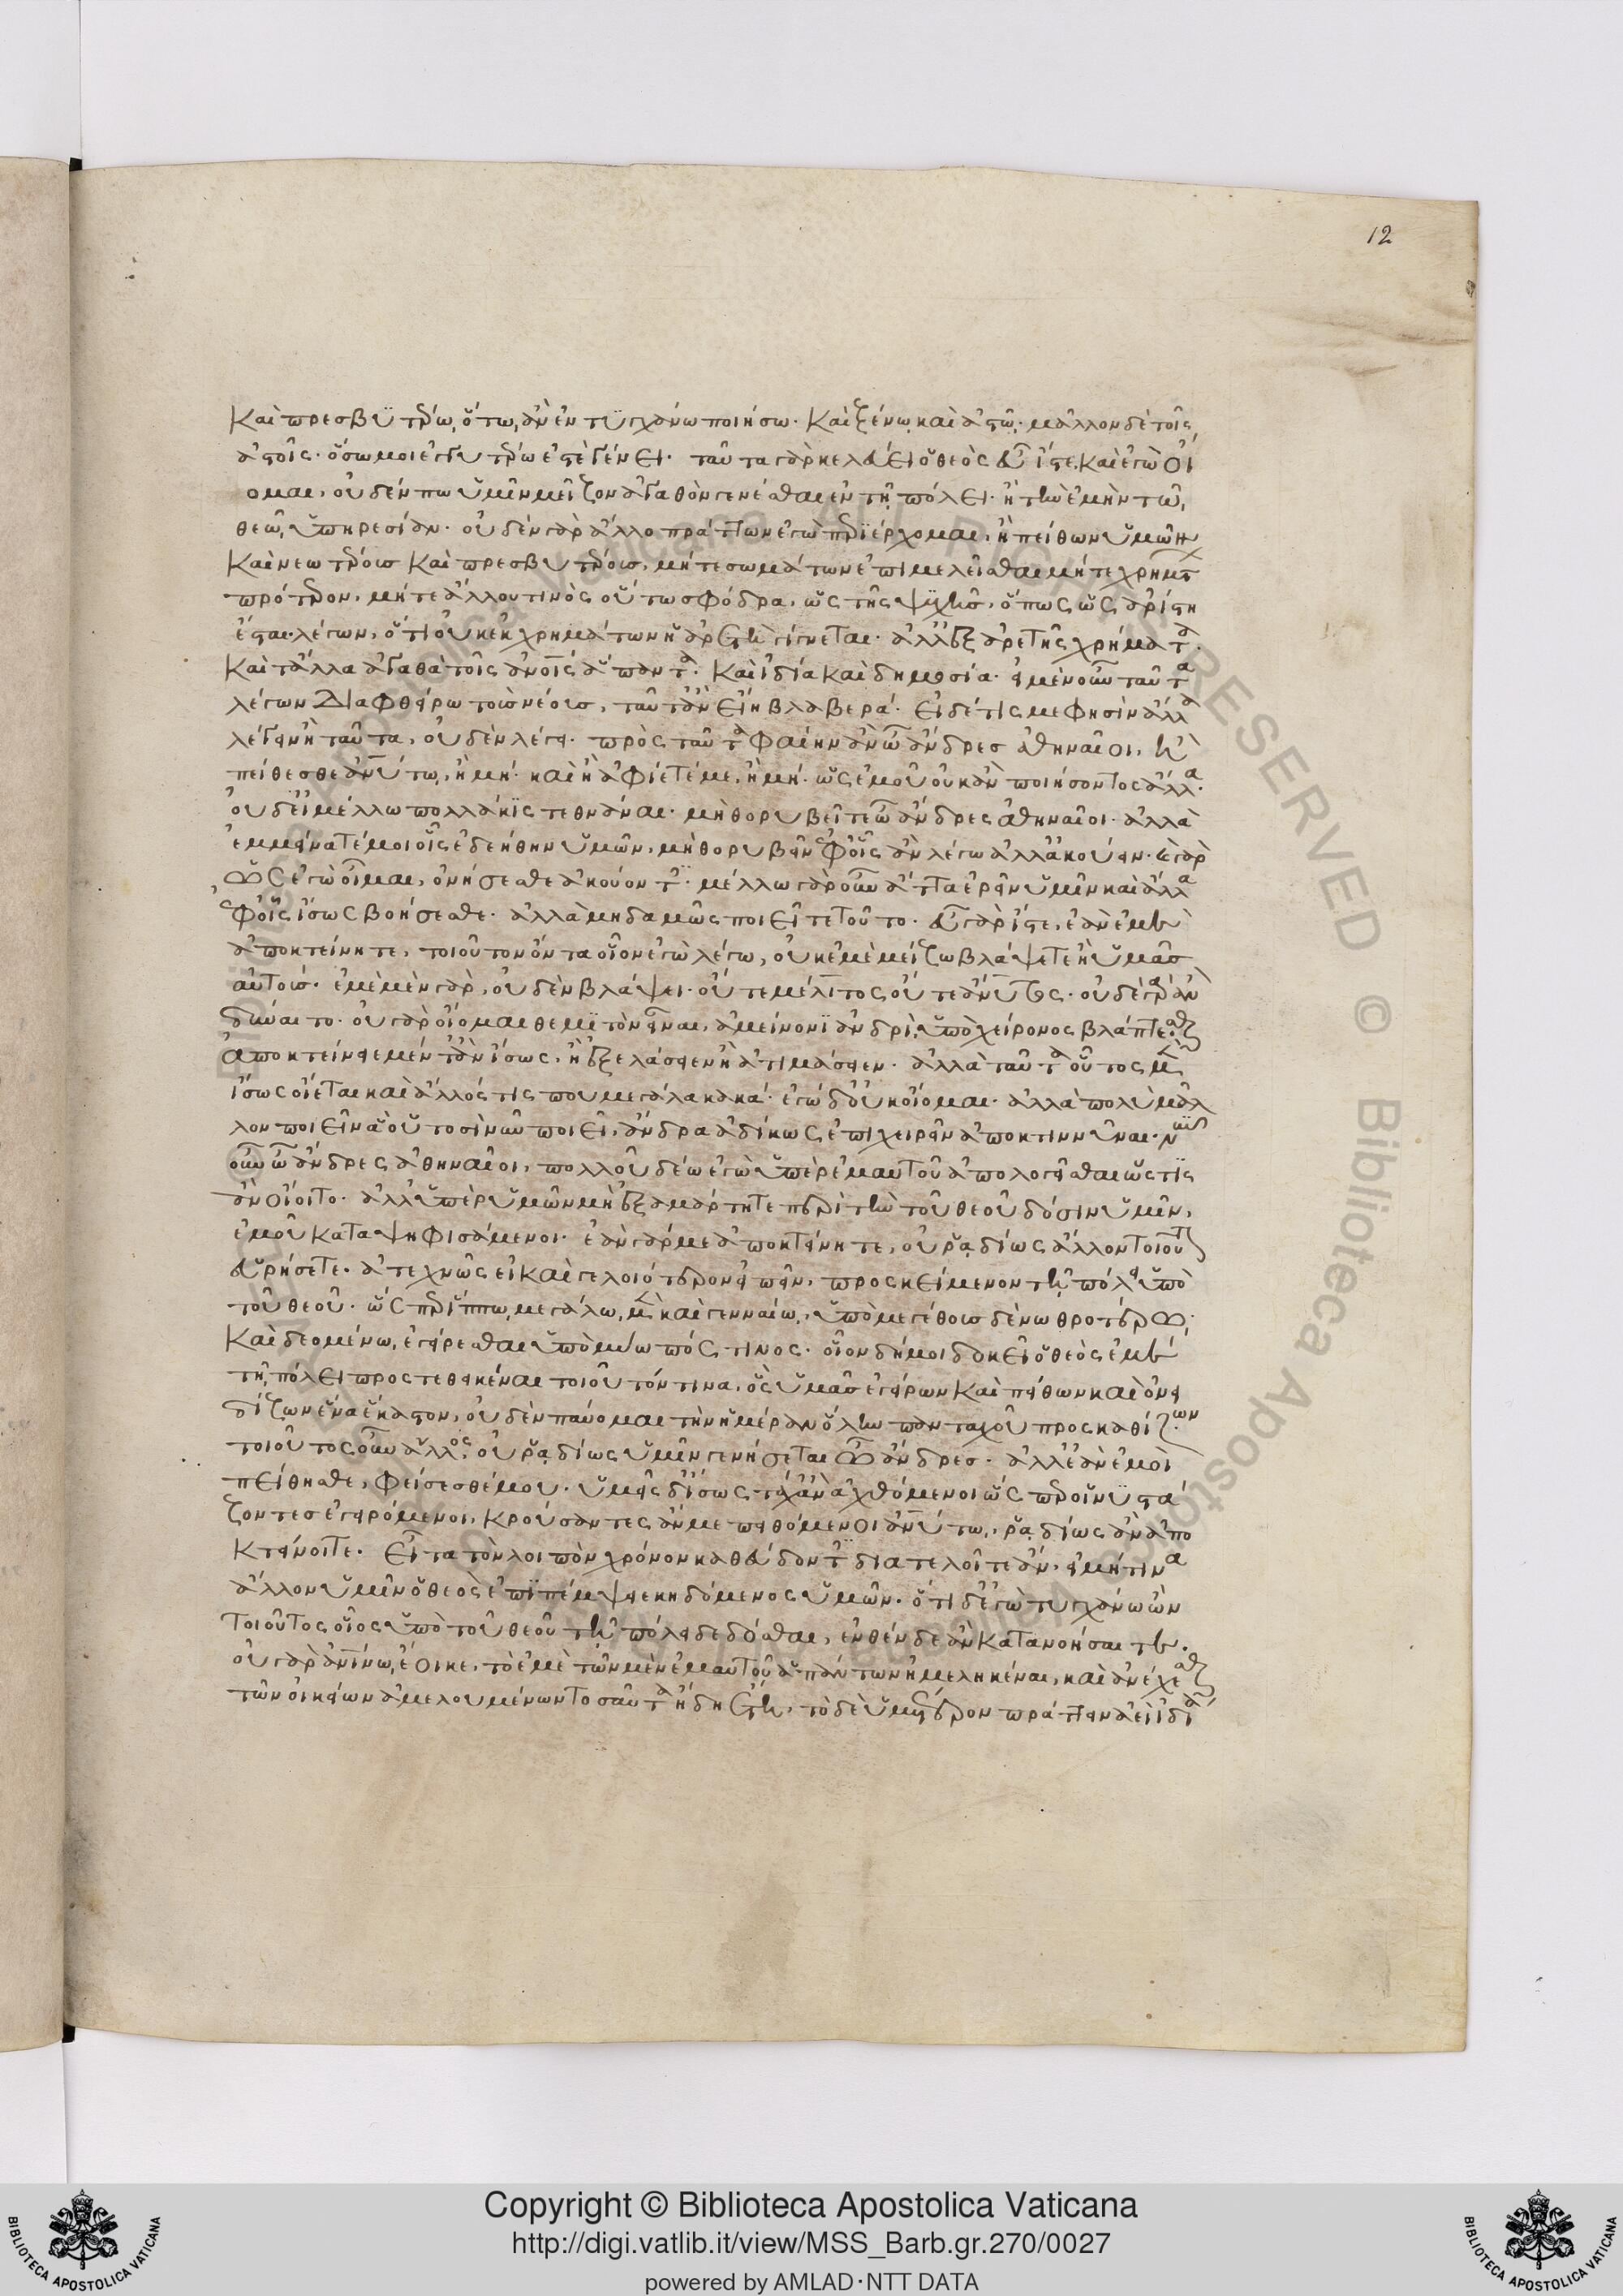 12
καὶ πρεσβυτέρω, ὅτω ἂν ἐντυγχάνω ποιήσω. καὶ ξένω καὶ ἀστῶ. μᾶλλον δὲ τοῖς
ἀστοῖς. ὅσω μοι ἐγγυτέρω ἐστὲ γένει. ταῦτα γὰρ κελεύει ὁ θεὸς εὖ ἴστε. καὶ ἐγὼ οἴ
ομαι, οὐδέν πω ὑμῖν μεῖζον ἀγαθὸν γενέσθαι ἐν τῆ πόλει. ἢ τὴν ἐμὴν τῶ
θεῶ ὑπηρεσίαν. οὐδὲν γὰρ ἄλλο πράττων ἐγὼ περιέρχομαι, ἢ πείθων ὑμῶν
καὶ νεωτέρους καὶ πρεσβυτέρους, μήτε σωμάτων ἐπιμελεῖσθαι μήτε χρημάτων
πρότερον, μήτε ἄλλου τινὸς οὕτω σφόδρα, ὡς τῆς ψυχῆς, ὅπως ὡς ἀρίστη
ἔσται. λέγων, ὅτι οὐκ ἐκ χρημάτων ἡ ἀρετὴ γίγνεται. ἀλλ' ἐξ ἀρετῆς χρήματα.
καὶ τἄλλα ἀγαθὰ τοῖς ἀνοις ἅπαντα. καὶ ἰδία καὶ δημοσία. εἰ μὲν οὖν ταῦτα
λέγων διαφθείρω τοὺς νέους, ταῦτ' ἂν εἴη βλαβερά. εἰ δέ τίς με φησὶν ἄλλα
λέγειν ἢ ταῦτα, οὐδὲν λέγει. πρὸς ταῦτα φαίην ἂν ὦ ἄνδρες ἀθηναῖοι, ἢ
πείθεσθε ἀνύτω, ἢ μή. καὶ ἢ ἀφίετέ με, ἢ μή. ὡς ἐμοῦ οὐκ ἂν ποιήσοντος ἄλλα.
οὐδ' εἰ μέλλω πολλάκις τεθνάναι. μὴ θορυβεῖτε ὦ ἄνδρες ἀθηναῖοι. ἀλλὰ
ἐμμείνατέ μοι οἷς ἐδεήθην ὑμῶν, μὴ θορυβεῖν ἐφ' οἷς ἂν λέγω ἀλλ' ἀκούειν. καὶ γὰρ
ὡς ἐγὼ οἶμαι, ὀνήσεσθε ἀκούοντες. μέλλω γὰρ οὖν ἄττα ἐρεῖν ὑμῖν καὶ ἄλλα
ἐφ' οἷς ἴσως βοήσεσθε. ἀλλὰ μηδαμῶς ποιεῖτε τοῦτο. εὖ γὰρ ἴστε, ἐὰν ἐμὲ
ἀποκτείνητε, τοιοῦτον ὄντα οἷον ἐγὼ λέγω, οὐκ ἐμὲ μείζω βλάψετε ἢ ὑμᾶς
αὐτούς. ἐμὲ μὲν γὰρ, οὐδὲν βλάψει. οὔτε μέλιτος οὔτε ἄνυτος. οὐδὲ γὰρ ἂν
δύναιτο. οὐ γὰρ οἴομαι θεμιτὸν εἶναι, ἀμείνονι ἀνδρὶ, ὑπὸ χείρονος βλάπτεσθαι
ἀποκτείνειε μέν τ' ἂν ἴσως, ἢ ἐξελάσειεν ἢ ἀτιμάσειεν. ἀλλὰ ταῦτα οὗτος μὲν
ἴσως οἴεται καὶ ἄλλός τίς που μεγάλα κακά. ἐγὼ δ' οὐκ οἴομαι. ἀλλὰ πολὺ μᾶλ
λον ποιεῖν ἃ οὑτοσὶ νῦν ποιεῖ, ἄνδρα ἀδίκως ἐπιχειρεῖν ἀποκτιννύναι. νῦν
οὖν ὦ ἄνδρες ἀθηναῖοι, πολλοῦ δέω ἐγὼ ὑπὲρ ἐμαυτοῦ ἀπολογεῖσθαι ὥς τις
ἂν οἴοιτο. ἀλλ' ὑπὲρ ὑμῶν μὴ ἐξαμάρτητε περὶ τὴν τοῦ θεοῦ δόσιν ὑμῖν,
ἐμοῦ καταψηφισάμενοι. ἐὰν γάρ με ἀποκτείνητε, οὐ ῥαδίως ἄλλον τοιοῦτον
εὑρήσετε. ἀτεχνῶς εἰ καὶ γελοιότερον εἰπεῖν, προσκείμενον τῆ πόλει ὑπὸ
τοῦ θεοῦ. ὥσπερ ἵππω, μεγάλω μὲν καὶ γενναίω, ὑπὸ μεγέθους δὲ νωθροτέρω.
καὶ δεομένω, ἐγείρεσθαι ὑπὸ μύωπός τινος. οἷον δή μοι δοκεῖ ὁ θεὸς ἐμὲ
τῆ πόλει προστεθεικέναι τοιοῦτόν τινα, ὃς ὑμᾶς ἐγείρων καὶ πείθων καὶ ὀνει
δίζων ἕνα ἕκαστον, οὐδὲν παύομαι τὴν ἡμέραν ὅλην πανταχοῦ προσκαθίζων.
τοιοῦτος οὖν ἄλλος, οὐ ῥαδίως ὑμῖν γενήσεται ὦ ἄνδρες. ἀλλ' ἐὰν ἐμοὶ
πείθησθε, φείσεσθέ μου. ὑμεῖς δ' ἴσως τάχ' ἂν ἀχθόμενοι ὥσπερ οἱ νυστά
ζοντες ἐγειρόμενοι, κρούσαντες ἄν με πειθόμενοι ἀνύτω, ῥαδίως ἂν ἀπο
κτείνοιτε. εἶτα τὸν λοιπὸν χρόνον καθεύδοντες διατελοῖτε ἄν. εἰ μή τινα
ἄλλον ὑμῖν ὁ θεὸς ἐπιπέμψειε κηδόμενος ὑμῶν. ὅτι δ' ἐγὼ τυγχάνω ὢν
τοιοῦτος οἷος ὑπὸ τοῦ θεοῦ τῆ πόλει δεδόσθαι, ἐνθένδε ἂν κατανοήσαιτε.
οὐ γὰρ ἀνίνω ἔοικε, τὸ ἐμὲ τῶν μὲν ἐμαυτοῦ ἁπάντων ἠμεληκέναι, καὶ ἀνέχεσθαι
τῶν οἰκείων ἀμελουμένων τοσαῦτα ἤδη ἔτη, τὸ δὲ ὑμέτερον πράττειν ἀεὶ ἰδία
Copyright © Biblioteca Apostolica Vaticana
http://digi.vatlib.it/view/MSS_Barb.gr.270/0027
powered by AMLAD·NTT DATA
BIBLIOTECA APOSTOLICA VATICANA
BIBLIOTECA APOSTOLICA VATICANA